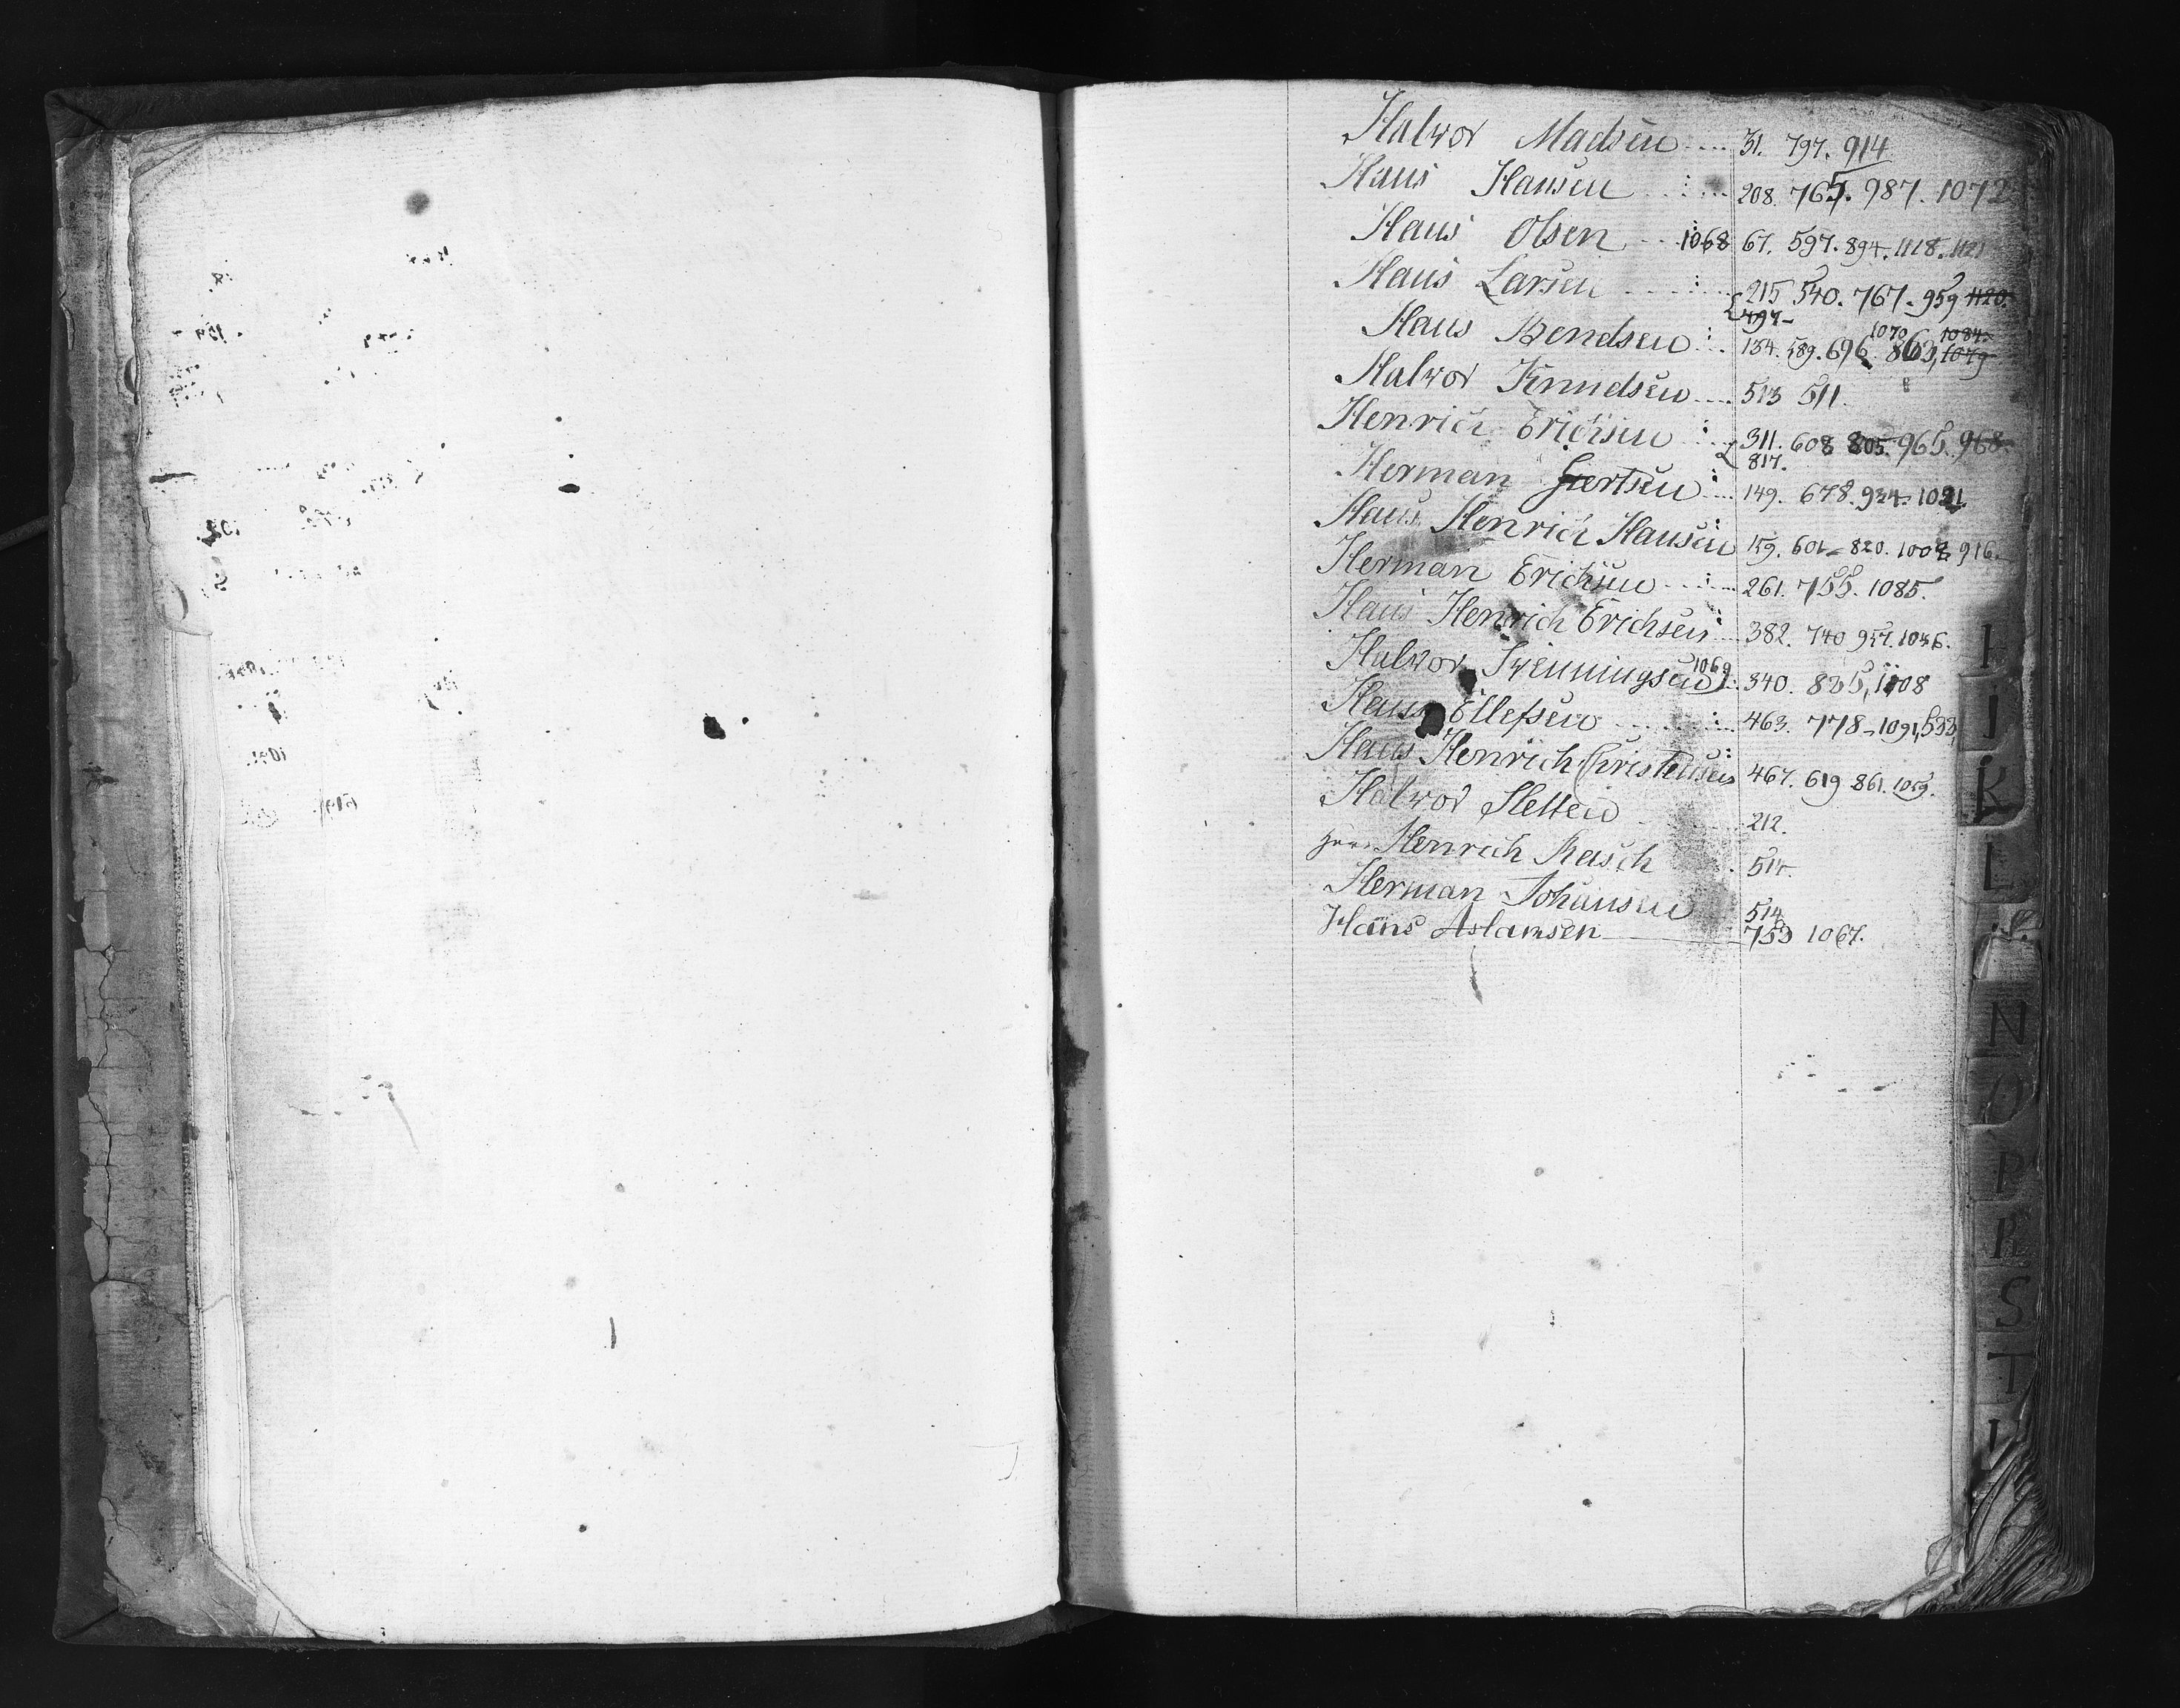 Halvor Madsen .... 31. 797. 914
Hans Hansen .... 208. 765. 987. 1072
Hans Olsen .. 1068 67. 597. 894. 1118. 1121
Hans Larsen .... 215 540. 767. 959 1120.
497
1070 1084
Hans Bendsen ... 134. 589. 696. 863, 1079
Halvor Knudsen .... 513 511.
Henrich Erichsen .... 311. 608 805. 965. 968.
817.
Herman Giertsen ... 149. 678. 934. 1021
Hans Henrich Hansen 159. 601. 820. 1008 916.
Herman Erichsen .... 261. 755. 1085.
Hans Henrich Erichsen ... 382. 740 957. 1036.
Halvor Svenningsen 1069 340. 825, 1108
Hans Ellefsen .... 463. 778. 1091, 533,
Hans Henrich Christensen 467. 619 861. 1059.
Halvor Sletten .... 212.
Henrich Rasch . 514.
Herman Johansen 514
Hans Aslamsen 753 1067.
H
I
K
L
N
O
P
R
S
T